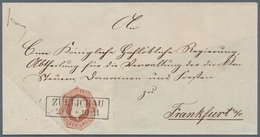 An
Eine Königliche Hochlöbliche Regierung,
Abtheilung für die Verwaltung der direkten
Steuern, Domainen und Forsten
zu
Frankfurt a/o
ZÜLLICHAU